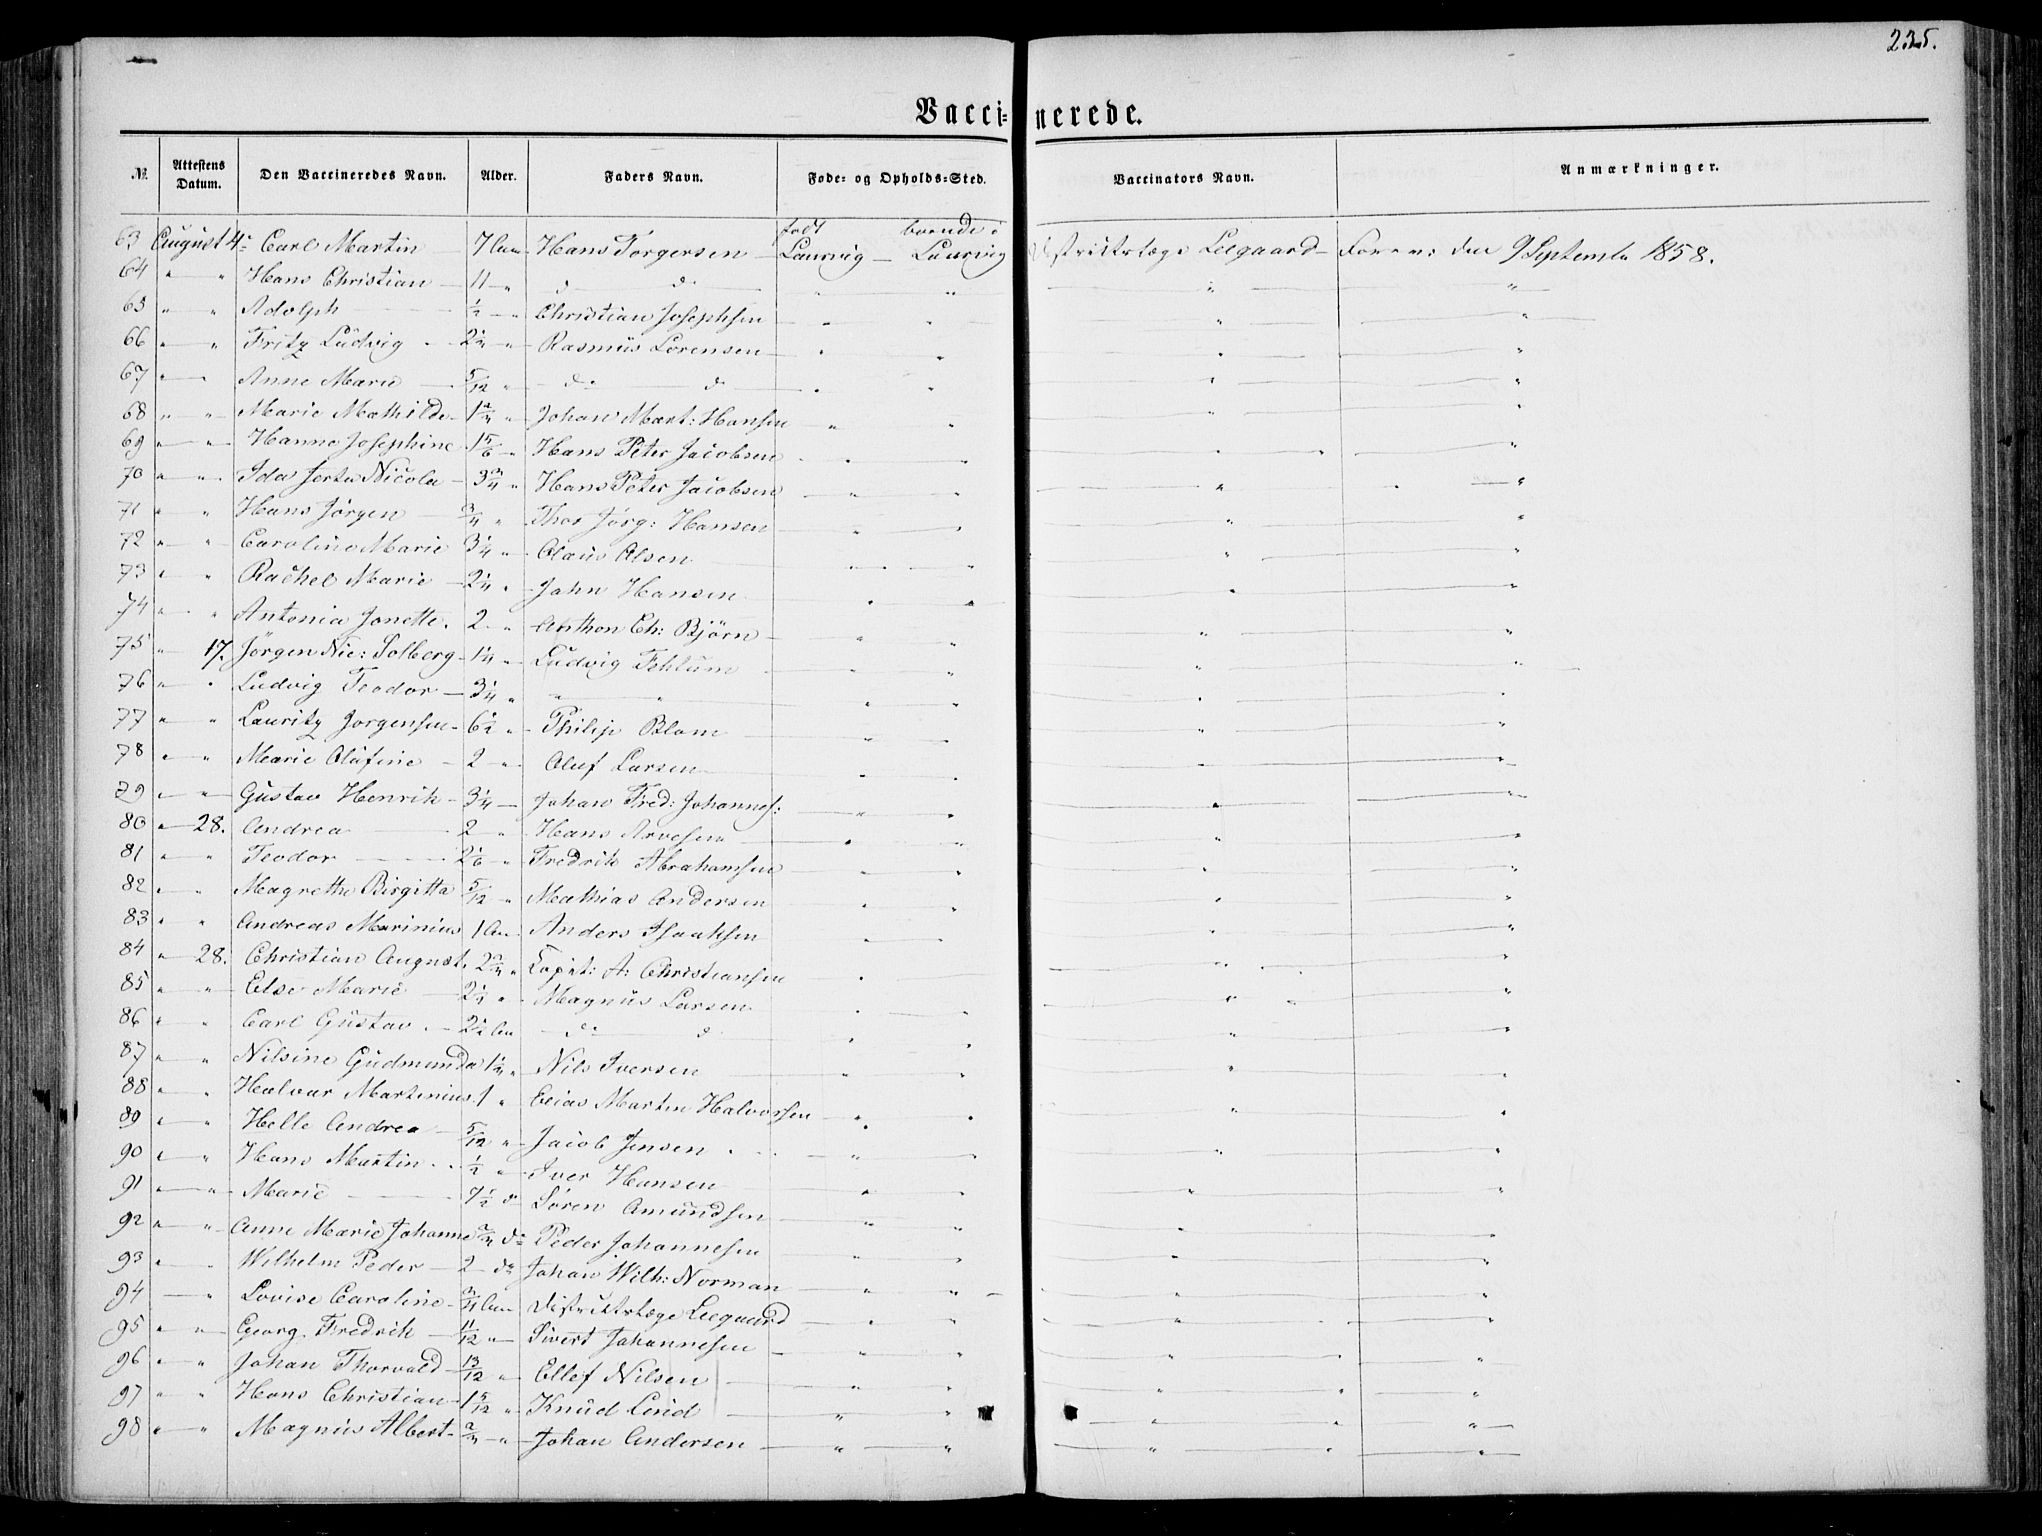 235.
Vacci= nerede.
№ Attestens Datum. Den Vaccineredes Navn. Alder. Faders Navn. Føde- og Opholds-Sted. Vaccinators Navn. Anmærkninger.
født boende i
63 August 4. Carl Martin 7 Aar Hans Torgersen Laurvig Laurvig Distriktslæge Leegaard den 9 September 1858.
64 " " Hans Christian 11 " do do " " " "
65 " " Adolph 1/2 " Christian Josephsen " " " "
66 " " Fritz Ludvig 2 1/4 " Rasmus Lorensen " " " "
67 " " Anne Marie 5/12 " do do " " " "
68 " " Marie Mathilde 1 3/4 " Johan Mart: Hansen " " " "
69 " " Hanne Josephine 1 5/6 " Hans Peter Jacobsen " " " "
70 " " Ida Nicola 3 3/4 " Hans Peter Jacobsen " " " "
71 " " Hans Jørgen 3/4 " Thor Jørg: Hansen " " " "
72 " " Caroline Marie 3 1/4 " Claus Olsen " " " "
73 " " Rachel Marie 2 1/4 " John Hansen " " " "
74 " " Antonia Jonette. 2 " Anthon Ch: Bjørn " " " "
75 " 17. Jørgen Nic: Solberg 1 1/4 " Ludvig Fehlum " " " "
76 " " Ludvig Teodor 3 1/4 " " " " " " "
77 " " Lauritz Jorgensen 6 1/2 " Philip Blom " " " "
78 " " Marie Olufine 2 " Oluf Larsen " " " "
79 " " Gustav Henrik 3 1/4 Johan Fred: Johannes: " " " "
80 " 28. Andrea 2 " Hans Arvesen " " " "
81 " " Teodor 2 1/6 " Fredrik Abrahamsen " " " "
82 " " Magrethe Birgitta 5/12 " Mathias Andersen " " " "
83 " " Andreas Marinius 1 Aar Anders Isaaksen " " " "
84 " 28. Christian August. 2 3/4 " Capit: A: Christiansen " " "
85 " " Else Marie 2 1/4 " Magnus Larsen " " " "
86 " " Carl Gustav 2 1/2 Aar do do " " " "
87 " " Nilsine Gudmunda 1 1/4 " Nils Iversen " " " "
88 " " Halvar Martinius 1 " Elias Martin Halvorsen " " " "
89 " " Helle Andrea 5/12 " Jacob Jensen " " "
90 " " Hans Martin 1/2 " Iver Hansen " " " "
91 " " Marie 7 1/2 do Søren Amundsen " " " "
92 " " Anne Marie Johanne 3/4 do Peder Johannesen " " " "
93 " " Wilhelm Peder 2 do Johan Wilh: Norman " " " "
94 " Lovise Caroline 3/4 Aar Distriktslæge Leegaard " " " "
95 " " Georg Fredrik 11/12 " Sivert Johannesen " " " "
96 " " Johan Thorvald 13/12 " Ellef Nilsen " " " "
97 " " Hans Christian 1 5/12 " Knud Lind " " " "
98 " " Magnus Albert 3/4 " Johan Andersen " " " "